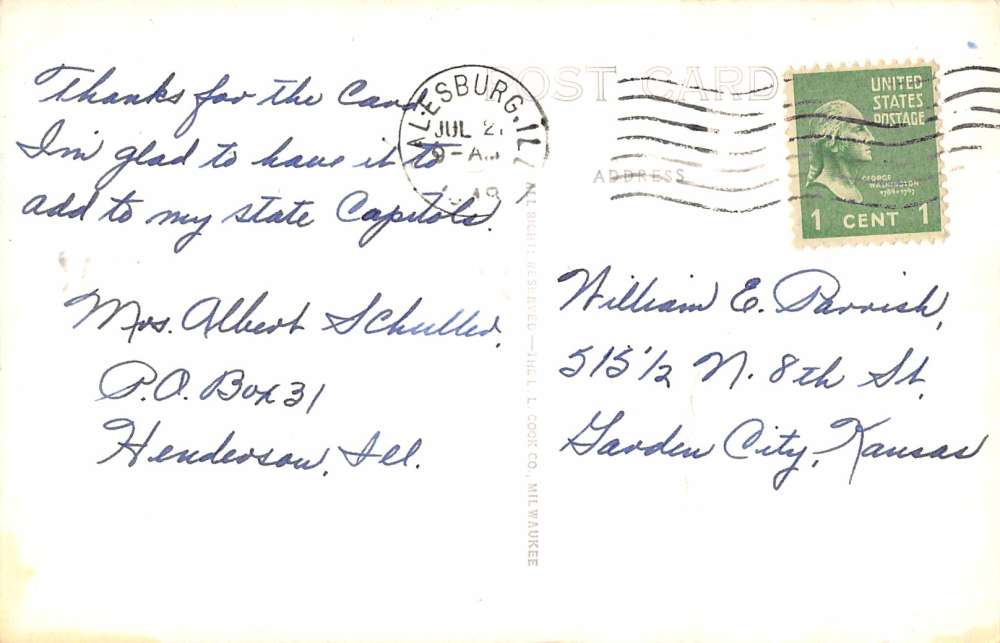 Thanks for the Card
I'm glad to have it to
add to my state Capitols.
Mrs. Albert Schuller,
P.O. Box 31
Henderson, Ill.
POST CARD
ADDRESS
ALESBURG, ILL
JUL 2
9-AM
UNITED
STATES
POSTAGE
GEORGE
WASHINGTON
1789-1797
1 CENT 1
William E. Parrish,
515 1/2 N. 8th St.
Garden City, Kansas
ALL RIGHTS RESERVED—THE L. L. COOK CO., MILWAUKEE